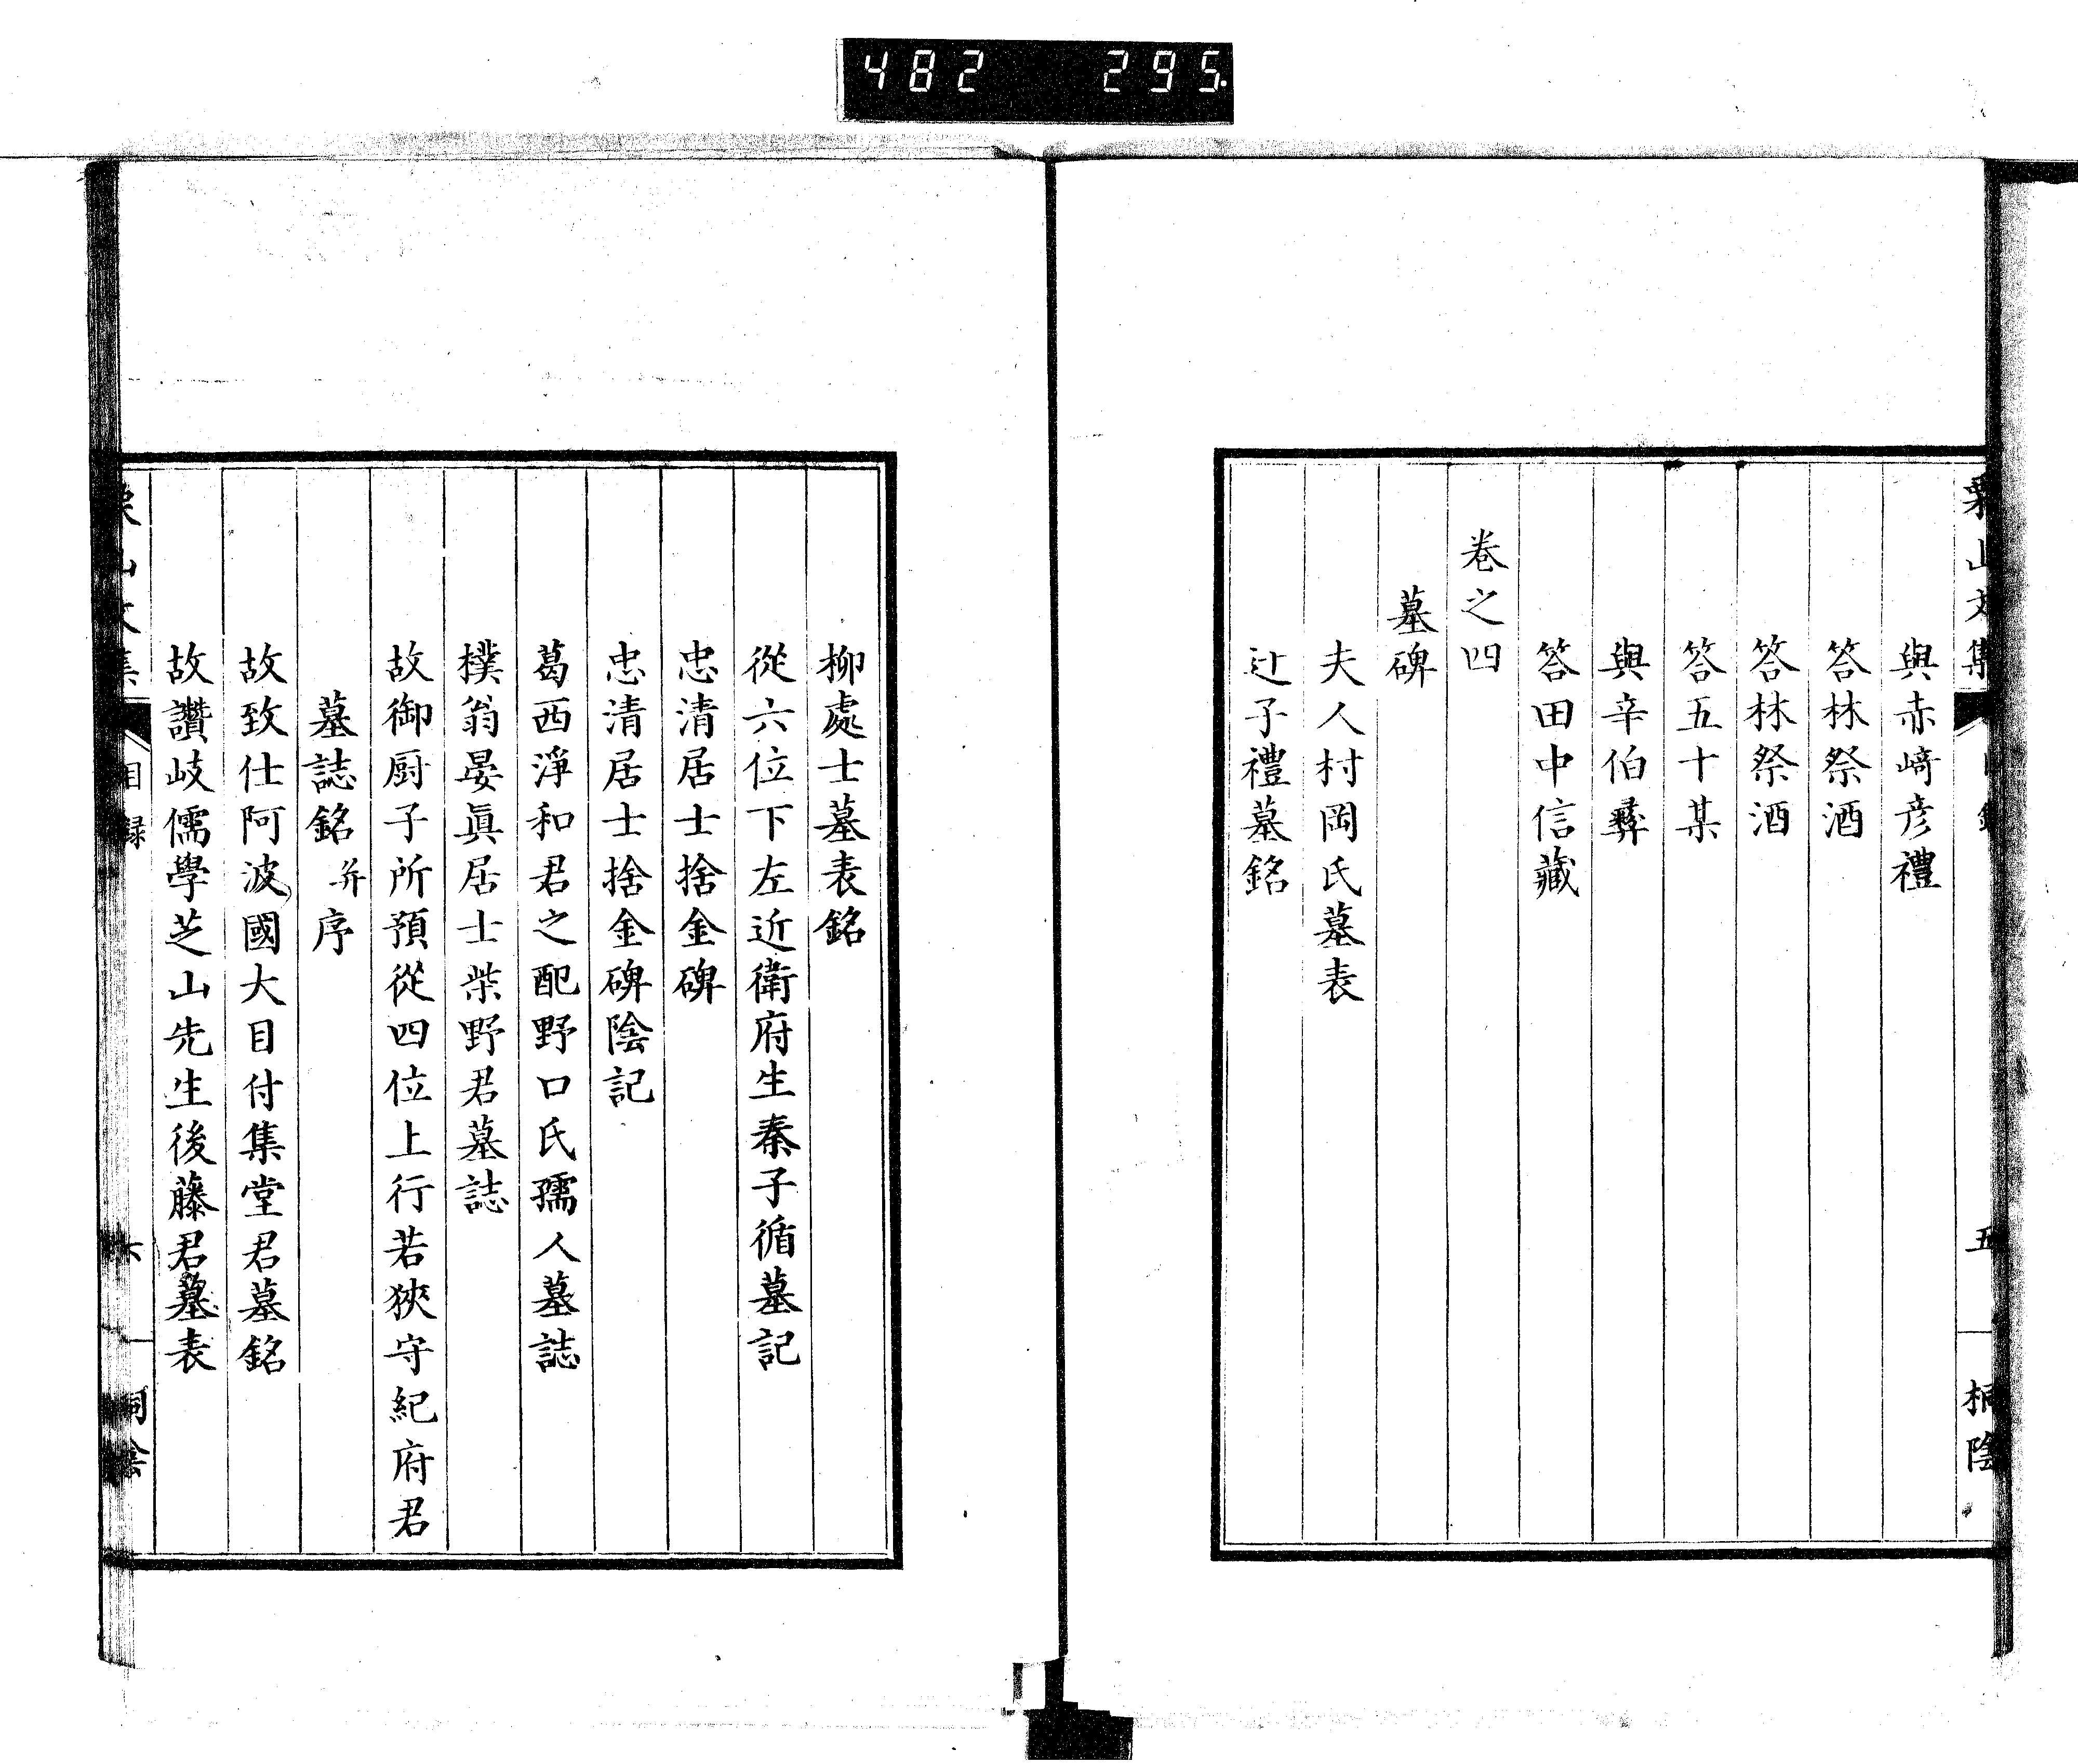 482 295.
栗山文集 目錄 五 桐陰
與赤﨑彦禮
答林祭酒
答林祭酒
答五十某
與辛伯彝
答田中信藏
卷之四
墓碑
夫人村岡氏墓表
辻子禮墓銘
柳處士墓表銘
從六位下左近衛府生秦子循墓記
忠清居士捨金碑
忠清居士捨金碑陰記
葛西淨和君之配野口氏孺人墓誌
樸翁晏眞居士柴野君墓誌
故御厨子所預從四位上行若狹守紀府君
墓誌銘 并序
故致仕阿波國大目付集堂君墓銘
故讚岐儒學芝山先生後藤君墓表
栗山文集 目錄 六 桐陰